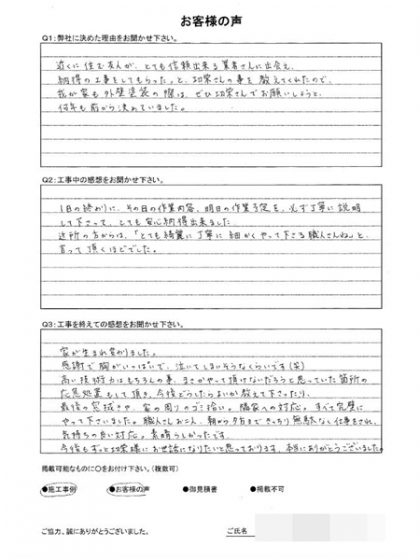 お客様の声
Q1：弊社に決めた理由をお聞かせ下さい。
近くに住む友人が、とても信頼出来る業者さんに出会え、
納得の工事をしてもらった」と、功栄さんの事を教えてくれたので、
我が家も外壁塗装の際は、ぜひ功栄さんでお願いしようと、
何年も前から決めていました。
Q2：工事中の感想をお聞かせ下さい。
1日の終わりに、その日の作業内容、明日の作業予定を、必ず丁寧に説明
して下さって、とても安心納得出来ました
近所の方からは、「とても綺麗に丁寧に細かくやって下さる職人さんね」と、
言って頂くほどでした。
Q3：工事を終えての感想をお聞かせ下さい。
家が生まれ変わりました。
感謝で胸がいっぱいで、泣いてしまいそうなくらいです(笑)
高い技術力はもちろんの事、まさかやって頂けないだろうと思っていた箇所の
応急処置もして頂き、今後どうしたらよいか教えて下さったり、
最後の完成きや、家の周りのゴミ拾い。隣家への対応。すべて完璧に
やって下さいました。職人さんお二人、朝から夕方まできっちり無駄なく仕事をされ、
気持ちの良い対応。素晴らしかったです。
今後もずっと功栄様にお世話になりたいと思っております。本当にありがとうございました。
掲載可能なものに○をお付け下さい。（複数可）
●施工事例 ●お客様の声 ●御見積書 ●掲載不可
ご協力、誠にありがとうございました。
ご氏名